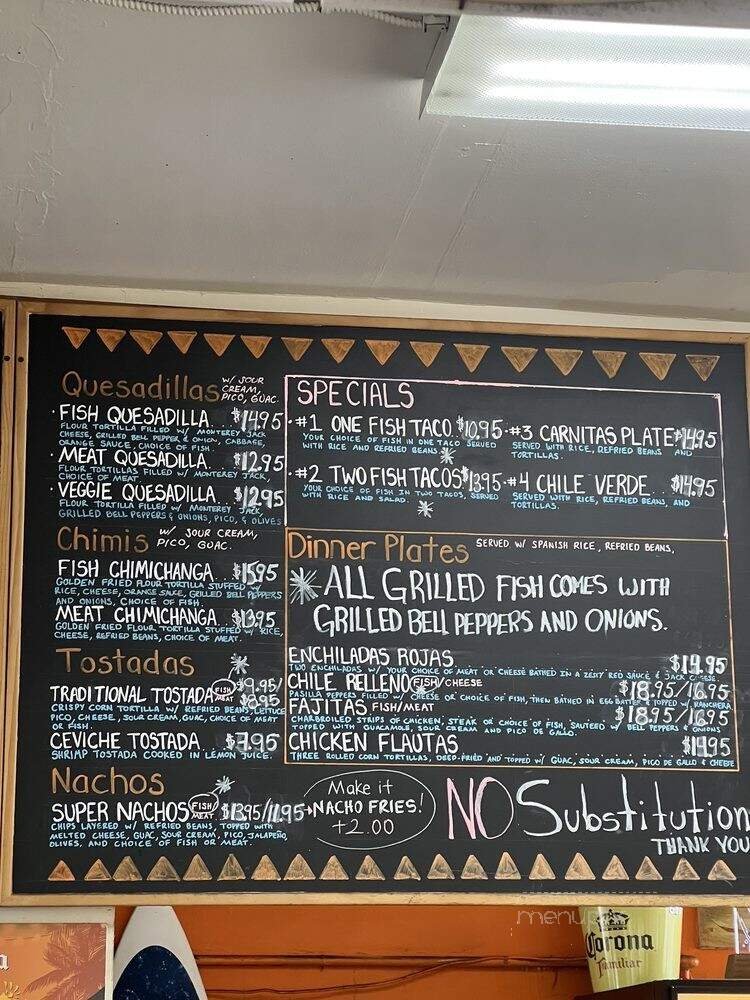 Quesadillas W/ SOUR
CREAM,
PICO, GUAC.
FISH QUESADILLA $14.95
FLOUR TORTILLA FILLED W/ MONTEREY JACK
CHEESE, GRILLED BELL PEPPER & ONION, CABBAGE,
ORANGE SAUCE, CHOICE OF FISH.
MEAT QUESADILLA $12.95
FLOUR TORTILLAS FILLED W/ MONTEREY JACK,
CHOICE OF MEAT.
VEGGIE QUESADILLA $12.95
FLOUR TORTILLA FILLED W/ MONTEREY JACK,
GRILLED BELL PEPPERS & ONIONS, PICO, & OLIVES
Chimis W/ SOUR CREAM,
PICO, GUAC.
FISH CHIMICHANGA $15.95
GOLDEN FRIED FLOUR TORTILLA STUFFED W/
RICE, CHEESE, ORANGE SAUCE, GRILLED BELL PEPPERS
AND ONIONS, CHOICE OF FISH.
MEAT CHIMICHANGA $13.95
GOLDEN FRIED FLOUR TORTILLA STUFFED W/ RICE,
CHEESE, REFRIED BEANS, CHOICE OF MEAT.
Tostadas
TRADITIONAL TOSTADA FISH/MEAT $9.95/
$8.95
CRISPY CORN TORTILLA W/ REFRIED BEANS, LETTUCE
PICO, CHEESE, SOUR CREAM, GUAC, CHOICE OF MEAT
OR FISH.
CEVICHE TOSTADA $7.95
SHRIMP TOSTADA COOKED IN LEMON JUICE.
Nachos
SUPER NACHOS FISH/MEAT $13.95/11.95
CHIPS LAYERED W/ REFRIED BEANS, TOPPED WITH
MELTED CHEESE, GUAC, SOUR CREAM, PICO, JALAPEÑO,
OLIVES, AND CHOICE OF FISH OR MEAT.
Make it
NACHO FRIES!
+2.00
SPECIALS
#1 ONE FISH TACO $10.95
YOUR CHOICE OF FISH IN ONE TACO SERVED
WITH RICE AND REFRIED BEANS
#2 TWO FISH TACOS $13.95
YOUR CHOICE OF FISH IN TWO TACOS, SERVED
WITH RICE AND SALAD.
#3 CARNITAS PLATE $14.95
SERVED WITH RICE, REFRIED BEANS AND
TORTILLAS.
#4 CHILE VERDE $14.95
SERVED WITH RICE, REFRIED BEANS, AND
TORTILLAS.
Dinner Plates SERVED W/ SPANISH RICE, REFRIED BEANS.
ALL GRILLED FISH COMES WITH
GRILLED BELL PEPPERS AND ONIONS.
ENCHILADAS ROJAS $14.95
TWO ENCHILADAS W/ YOUR CHOICE OF MEAT OR CHEESE BATHED IN A ZESTY RED SAUCE & JACK CHEESE.
CHILE RELLENO FISH/CHEESE $18.95/16.95
PASILLA PEPPERS FILLED W/ CHEESE OR CHOICE OF FISH, THEN BATHED IN EGG BATTER & TOPPED W/ RANCHERA
FAJITAS FISH/MEAT $18.95/16.95
CHARBROILED STRIPS OF CHICKEN, STEAK OR CHOICE OF FISH, SAUTEED W/ BELL PEPPERS & ONIONS
TOPPED WITH GUACAMOLE, SOUR CREAM AND PICO DE GALLO.
CHICKEN FLAUTAS $14.95
THREE ROLLED CORN TORTILLAS, DEEP-FRIED AND TOPPED W/ GUAC, SOUR CREAM, PICO DE GALLO & CHEESE
NO Substitution
THANK YOU
Corona
Familiar